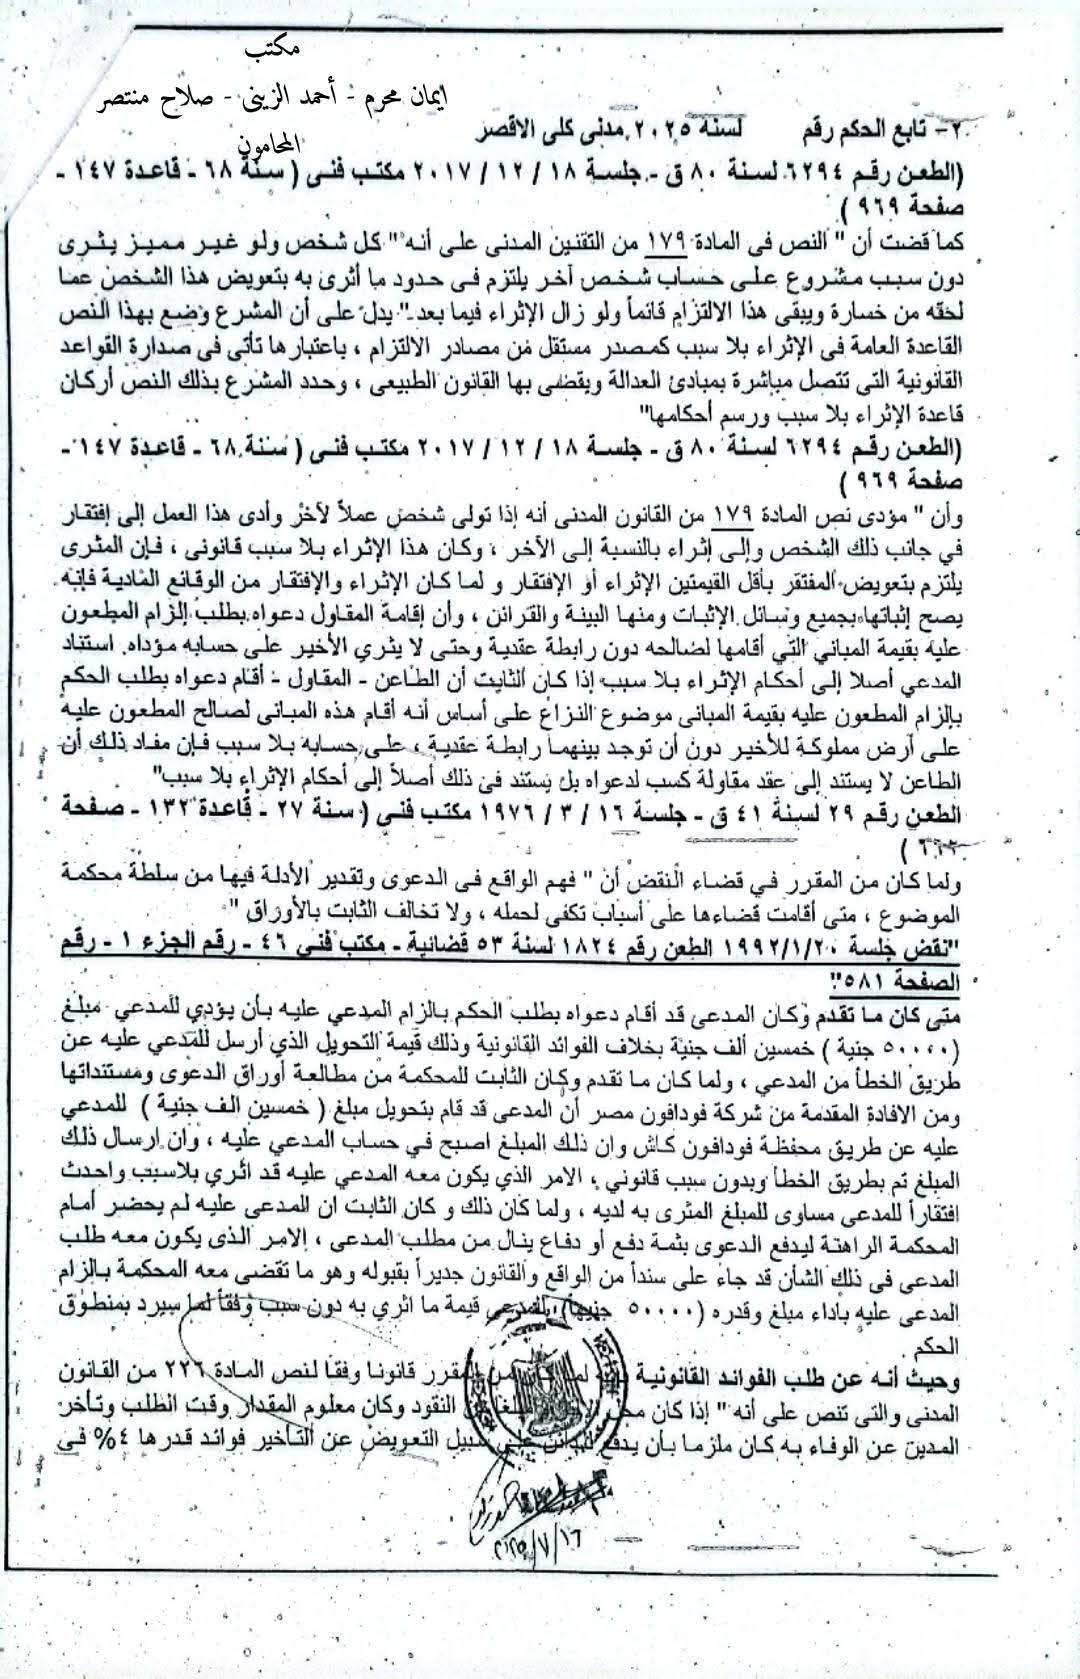 مكتب
ايمان محرم - أحمد الزينى - صلاح منتصر
المحامون
٢- تابع الحكم رقم لسنه ٢٠٢٥ مدنى كلى الاقصر
(الطعن رقم ٦٢٩٤ لسنة ٨٠ ق - جلسة ١٨ / ١٢ / ٢٠١٧ مكتب فنى ( سنة ٦٨ - قاعدة ١٤٧ -
صفحة ٩٦٩ )
كما قضت أن " النص فى المادة ١٧٩ من التقنين المدنى على أنه " كل شخص ولو غير مميز يثرى
دون سبب مشروع على حساب شخص آخر يلتزم فى حدود ما أثرى به بتعويض هذا الشخص عما
لحقه من خسارة ويبقى هذا الالتزام قائماً ولو زال الإثراء فيما بعد " يدل على أن المشرع وضع بهذا النص
القاعدة العامة فى الإثراء بلا سبب كمصدر مستقل من مصادر الالتزام ، باعتبارها تأتى فى صدارة القواعد
القانونية التى تتصل مباشرة بمبادئ العدالة ويقضى بها القانون الطبيعى ، وحدد المشرع بذلك النص أركان
قاعدة الإثراء بلا سبب ورسم أحكامها"
(الطعن رقم ٦٢٩٤ لسنة ٨٠ ق - جلسة ١٨ / ١٢ / ٢٠١٧ مكتب فنى ( سنة ٦٨ - قاعدة ١٤٧ -
صفحة ٩٦٩ )
وأن " مؤدى نص المادة ١٧٩ من القانون المدنى أنه إذا تولى شخص عملاً لآخر وأدى هذا العمل إلى إفتقار
في جانب ذلك الشخص وإلى إثراء بالنسبة إلى الآخر ، وكان هذا الإثراء بلا سبب قانونى ، فإن المثرى
يلتزم بتعويض المفتقر بأقل القيمتين الإثراء أو الإفتقار و لما كان الإثراء والإفتقار من الوقائع المادية فإنه
يصح إثباتها بجميع وسائل الإثبات ومنها البينة والقرائن ، وأن إقامة المقاول دعواه بطلب إلزام المطعون
عليه بقيمة المباني التي أقامها لصالحه دون رابطة عقدية وحتى لا يثري الأخير على حسابه مؤداه. استناد
المدعي أصلا إلى أحكام الإثراء بلا سبب إذا كان الثابت أن الطاعن - المقاول - أقام دعواه بطلب الحكم
بإلزام المطعون عليه بقيمة المبانى موضوع النزاع على أساس أنه أقام هذه المبانى لصالح المطعون عليه
على أرض مملوكة للأخير دون أن توجد بينهما رابطة عقدية ، على حسابه بلا سبب فإن مفاد ذلك أن
الطاعن لا يستند إلى عقد مقاولة كسب لدعواه بل يستند فى ذلك أصلاً إلى أحكام الإثراء بلا سبب"
الطعن رقم ٢٩ لسنة ٤١ ق - جلسة ١٦ / ٣ / ١٩٧٦ مكتب فنى ( سنة ٢٧ - قاعدة ١٣٢ - صفحة
)
ولما كان من المقرر في قضاء النقض أن " فهم الواقع فى الدعوى وتقدير الأدلة فيها من سلطة محكمة
الموضوع ، متى أقامت قضاءها على أسباب تكفى لحمله ، ولا تخالف الثابت بالأوراق "
"نقض جلسة ١٩٩٢/١/٢٠ الطعن رقم ١٨٢٤ لسنة ٥٣ قضائية - مكتب فني ٤٦ - رقم الجزء ١ - رقم
الصفحة ٥٨١"
متى كان ما تقدم وكان المدعى قد أقام دعواه بطلب الحكم بالزام المدعي عليه بأن يؤدي للمدعي مبلغ
(٥٠٠٠٠ جنية ) خمسين ألف جنية بخلاف الفوائد القانونية وذلك قيمة التحويل الذي أرسل للمدعي عليه عن
طريق الخطأ من المدعي ، ولما كان ما تقدم وكان الثابت للمحكمة من مطالعة أوراق الدعوى ومستنداتها
ومن الافادة المقدمة من شركة فودافون مصر أن المدعى قد قام بتحويل مبلغ ( خمسين الف جنية ) للمدعي
عليه عن طريق محفظة فودافون كاش وان ذلك المبلغ اصبح في حساب المدعي عليه ، وان ارسال ذلك
المبلغ تم بطريق الخطأ وبدون سبب قانوني ، الامر الذي يكون معه المدعي عليه قد اثري بلاسبب واحدث
افتقاراً للمدعى مساوى للمبلغ المثرى به لديه ، ولما كان ذلك و كان الثابت ان المدعى عليه لم يحضر أمام
المحكمة الراهنة ليدفع الدعوى بثمة دفع أو دفاع ينال من مطلب المدعى ، الامر الذى يكون معه طلب
المدعى فى ذلك الشأن قد جاء على سنداً من الواقع والقانون جديراً بقبوله وهو ما تقضى معه المحكمة بالزام
المدعى عليه باداء مبلغ وقدره (٥٠٠٠٠ جنيها) للمدعى قيمة ما اثري به دون سبب وفقاً لما سيرد بمنطوق
الحكم .
وحيث أنه عن طلب الفوائد القانونية المقرر قانونا وفقا لنص المادة ٢٢٦ من القانون
المدنى والتى تنص على أنه " إذا كان محل النقود وكان معلوم المقدار وقت الطلب وتأخر
المدين عن الوفاء به كان ملزما بأن يدفع للدائن على سبيل التعويض عن التأخير فوائد قدرها ٤% في
٢٠٢٥/٧/١٦